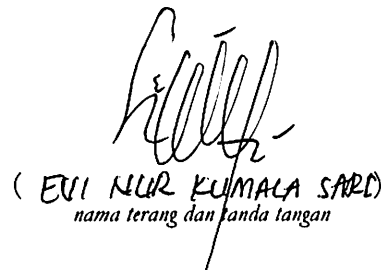 ( EVI NUR KUMALA SARI)
nama terang dan tanda tangan